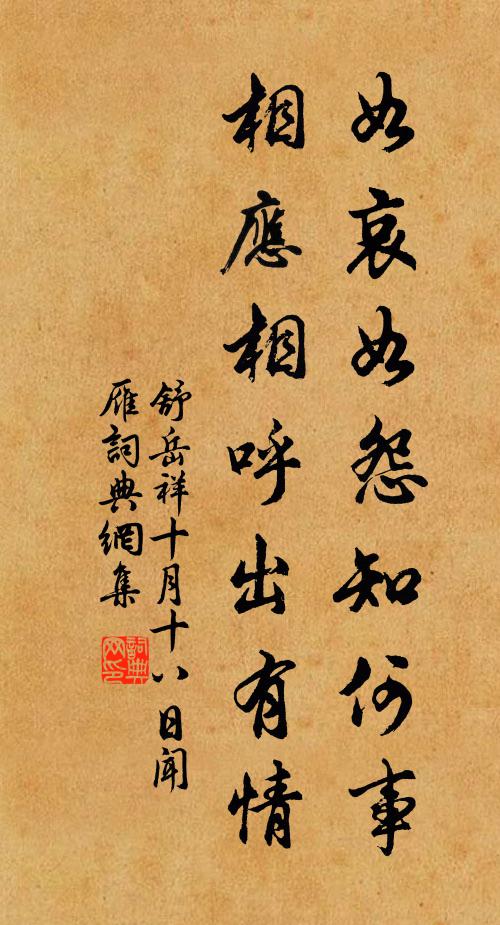 如哀如怨知何事
相應相呼出有情
舒岳祥十月十八日聞
雁詞典網集
詞典
网印